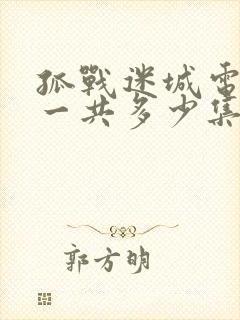 孤戰迷城電
一共多少集
郭方明